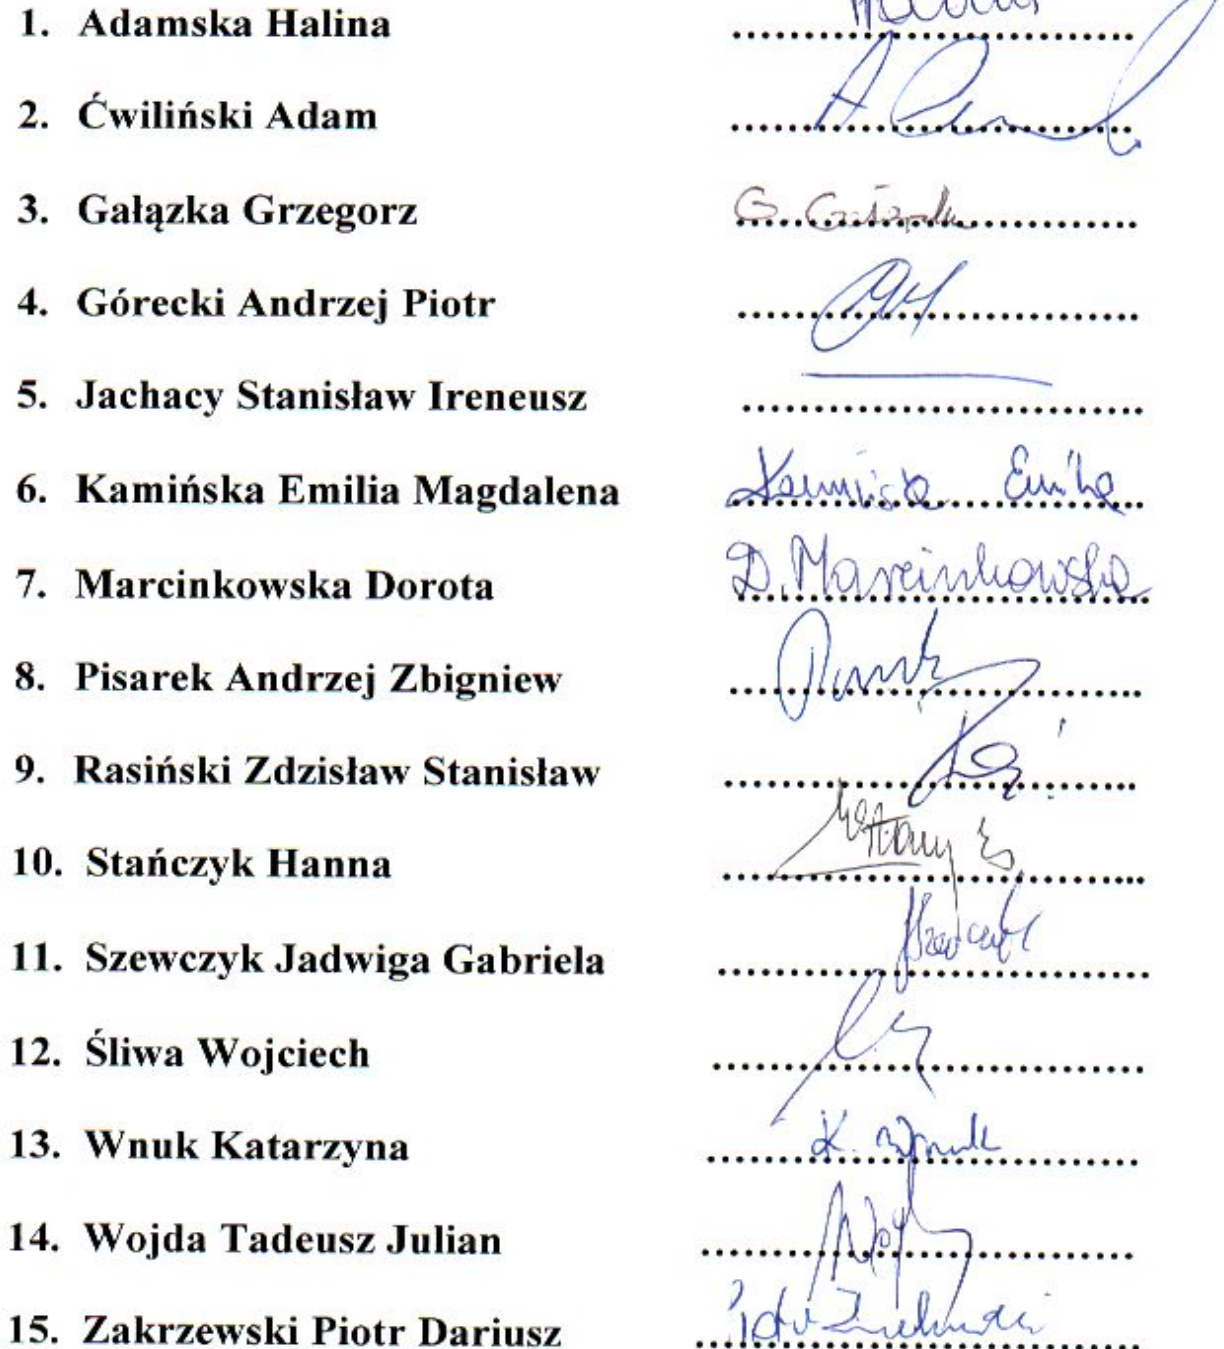 1. Adamska Halina ........................................
2. Ćwiliński Adam ........................................
3. Gałązka Grzegorz G. Gałązka
4. Górecki Andrzej Piotr ........................................
5. Jachacy Stanisław Ireneusz ........................................
6. Kamińska Emilia Magdalena Kamińska Emilia
7. Marcinkowska Dorota D. Marcinkowska
8. Pisarek Andrzej Zbigniew ........................................
9. Rasiński Zdzisław Stanisław ........................................
10. Stańczyk Hanna ........................................
11. Szewczyk Jadwiga Gabriela Szewczyk
12. Śliwa Wojciech ........................................
13. Wnuk Katarzyna K. Wnuk
14. Wojda Tadeusz Julian ........................................
15. Zakrzewski Piotr Dariusz Piotr Zakrzewski